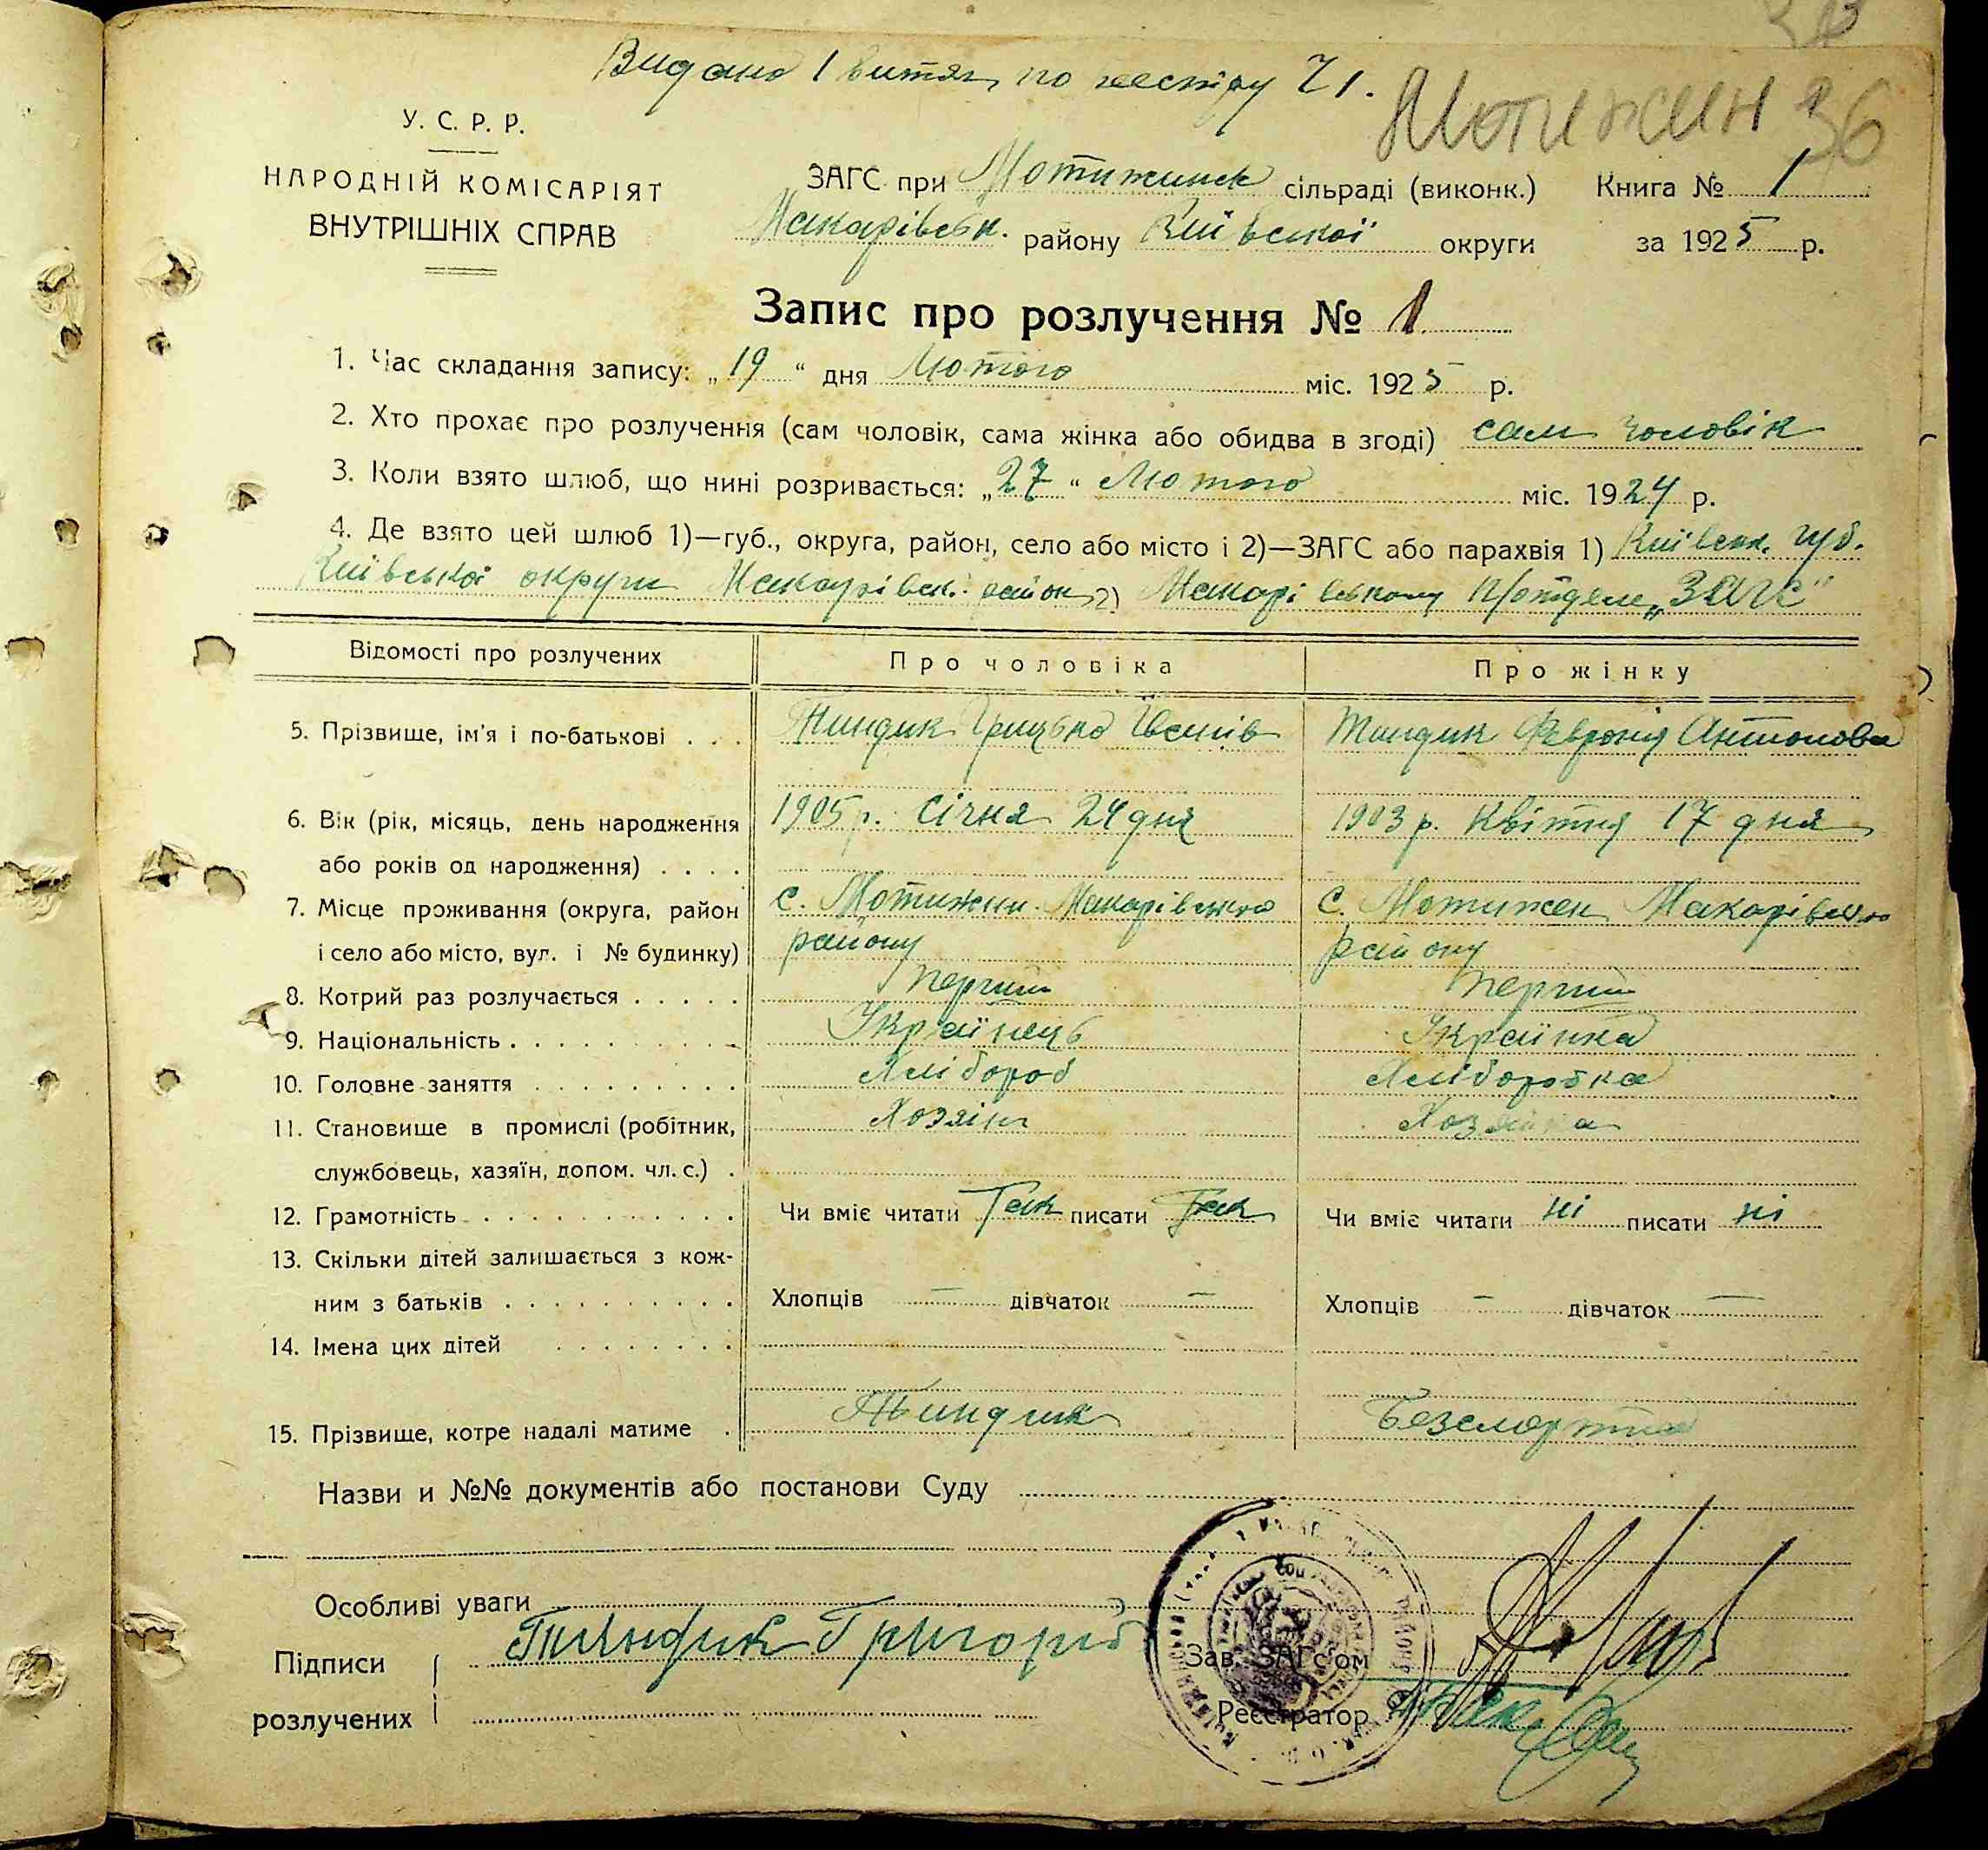 Видано 1 витяг по реєстру 71.
Мотижин 36
У. С. Р. Р.
НАРОДНІЙ КОМІСАРІЯТ
ВНУТРІШНІХ СПРАВ
ЗАГС при Мотижинск сільраді (виконк.) Книга № 1
Макарівськ. району Київської округи за 1925 р.
Запис про розлучення № 1
1. Час складання запису: „19“ дня Лютого міс. 1925 р.
2. Хто прохає про розлучення (сам чоловік, сама жінка або обидва в згоді) сам чоловік
3. Коли взято шлюб, що нині розривається: „27“ Лютого міс. 1924 р.
4. Де взято цей шлюб 1)—губ., округа, район, село або місто і 2)—ЗАГС або парахвія 1) Київськ. губ.
Київської округи Макарівск. район 2) Макарівському П/отделе „ЗАГС“
Відомості про розлучених Про чоловіка Про жінку
5. Прізвище, ім'я і по-батькові . . . Тиндик Грицько Іванів Тиндик Февронія Антонова
6. Вік (рік, місяць, день народження 1905 р. Січня 24 дня 1903 р. Квітня 17 дня
або років од народження) . . . .
7. Місце проживання (округа, район С. Мотижин Макарівського С. Мотижен Макарівського
і село або місто, вул. і № будинку) району району
8. Котрий раз розлучається . . . . . Перший Перший
9. Національність . . . . . . . . . . Українець Українка
10. Головне заняття . . . . . . . . . Хлібороб Хліборобка
11. Становище в промислі (робітник, Хозяін Хозяйка
службовець, хазяїн, допом. чл. с.) .
12. Грамотність . . . . . . . . . . . . Чи вміє читати Так писати Так Чи вміє читати ні писати ні
13. Скільки дітей залишається з кож-
ним з батьків . . . . . . . . . . Хлопців — дівчаток — Хлопців — дівчаток —
14. Імена цих дітей . . . . . . . .
15. Прізвище, котре надалі матиме . Тиндик Безсмертна
Назви и №№ документів або постанови Суду
Особливі уваги
Підписи Тиндик Григорий Зав. ЗАГс'ом
розлучених Реєстратор